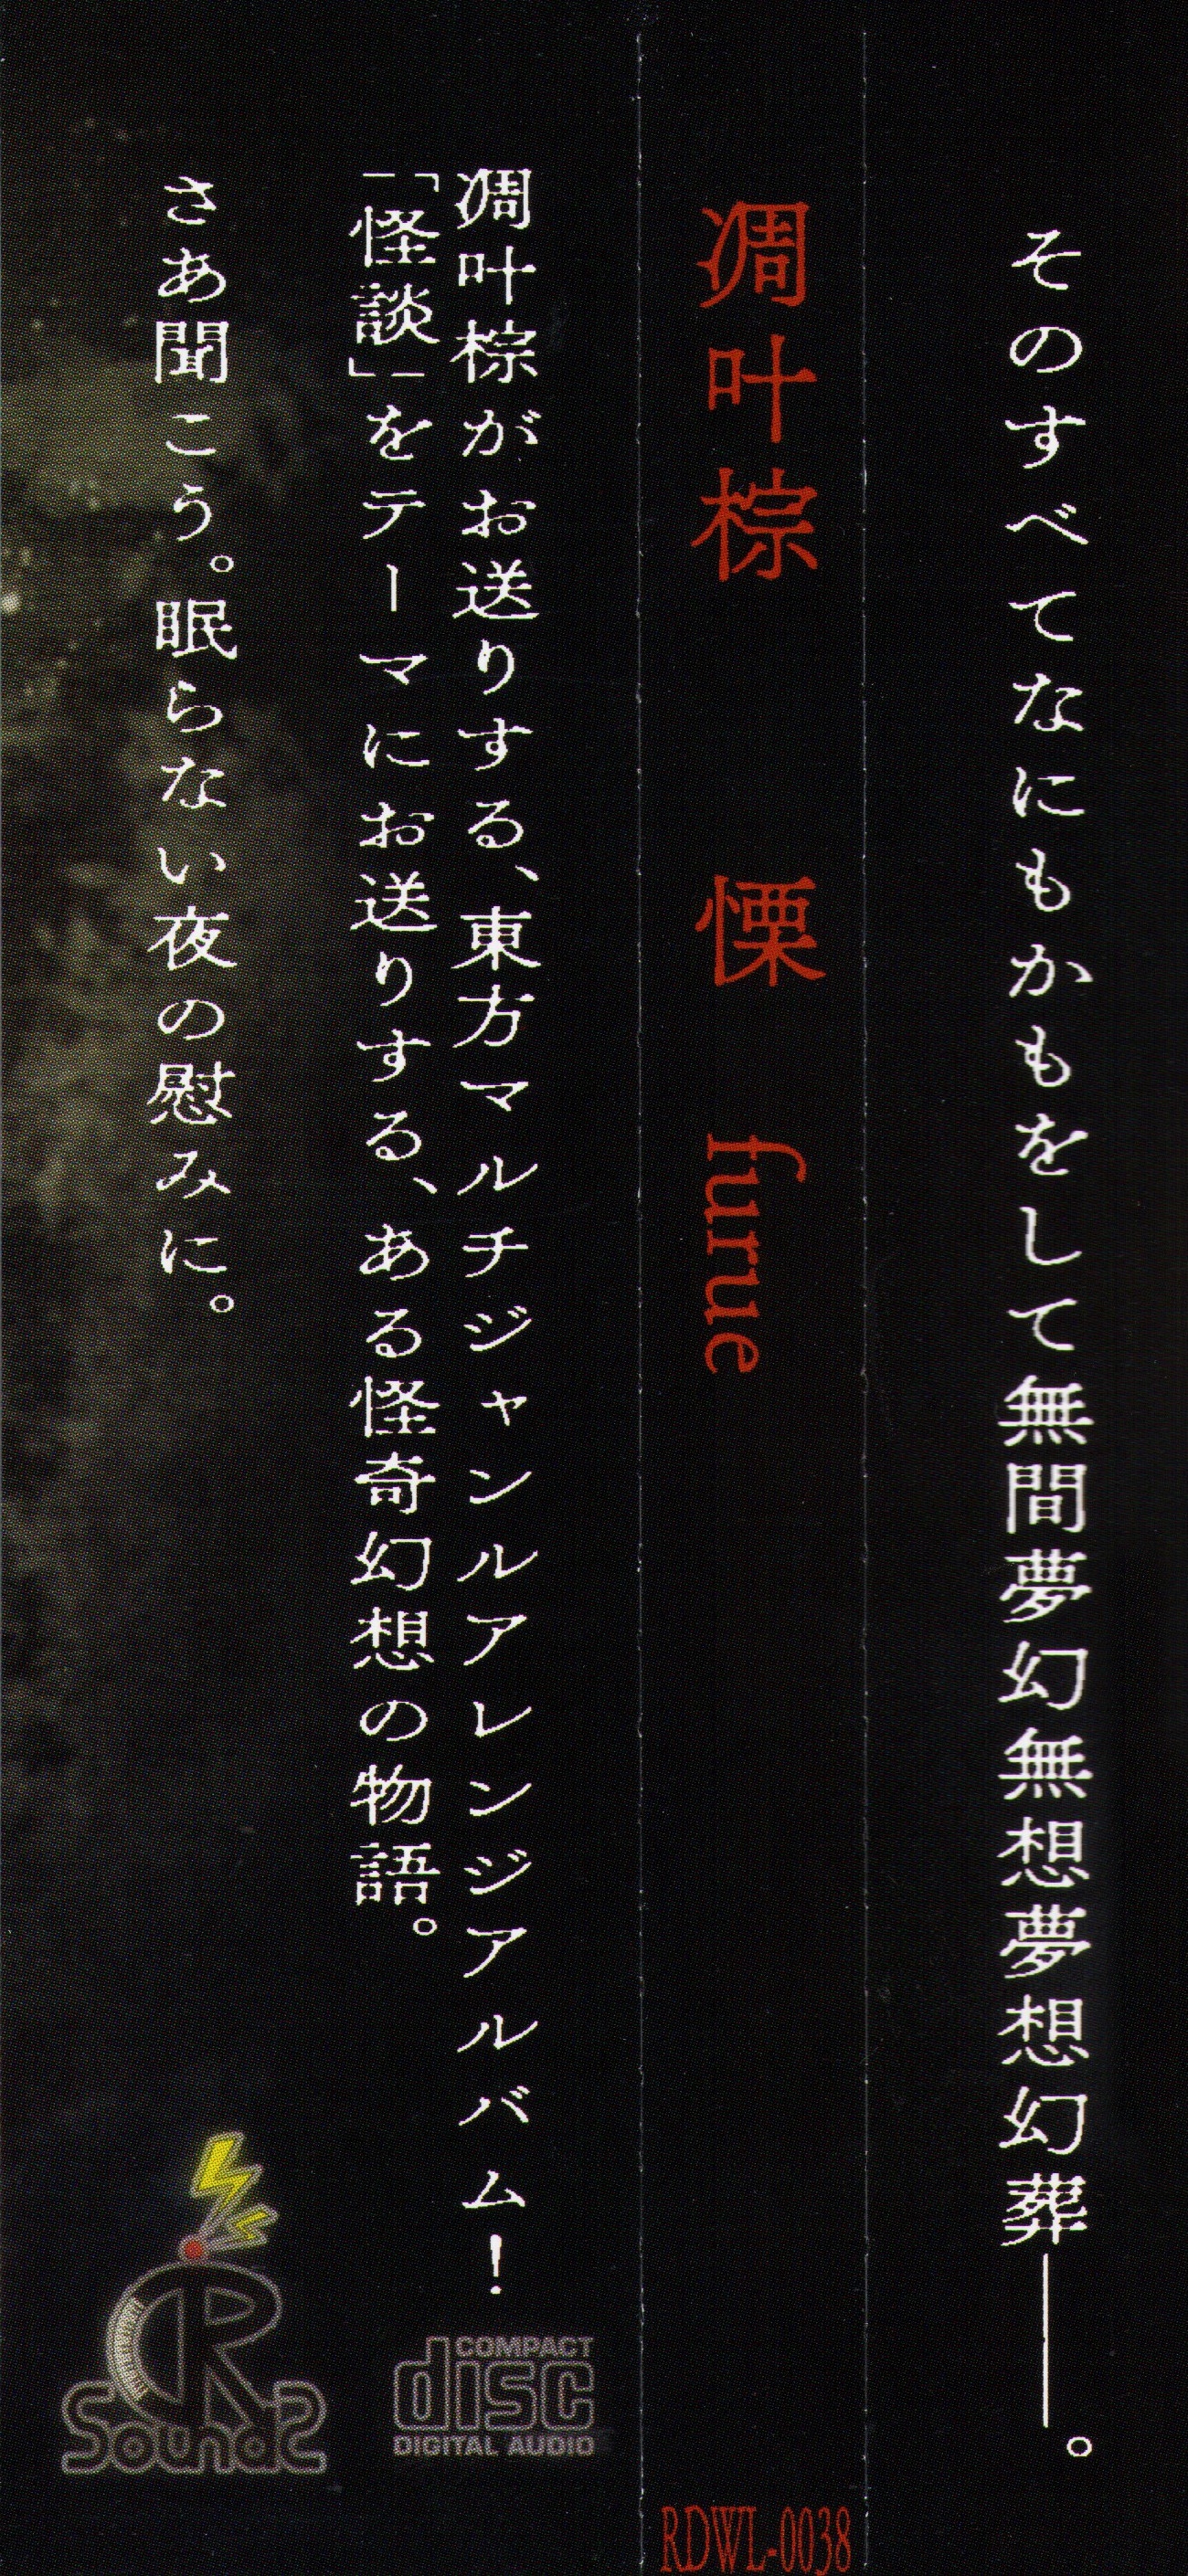 そのすべてなにもかもをして無間夢幻無想夢想幻葬――。
凋叶棕 慄 furue
RDWL-0038
凋叶棕がお送りする、東方マルチジャンルアレンジアルバム！
「怪談」をテーマにお送りする、ある怪奇幻想の物語。
さあ聞こう。眠らない夜の慰みに。
COMPACT
disc
DIGITAL AUDIO
R
Sounds